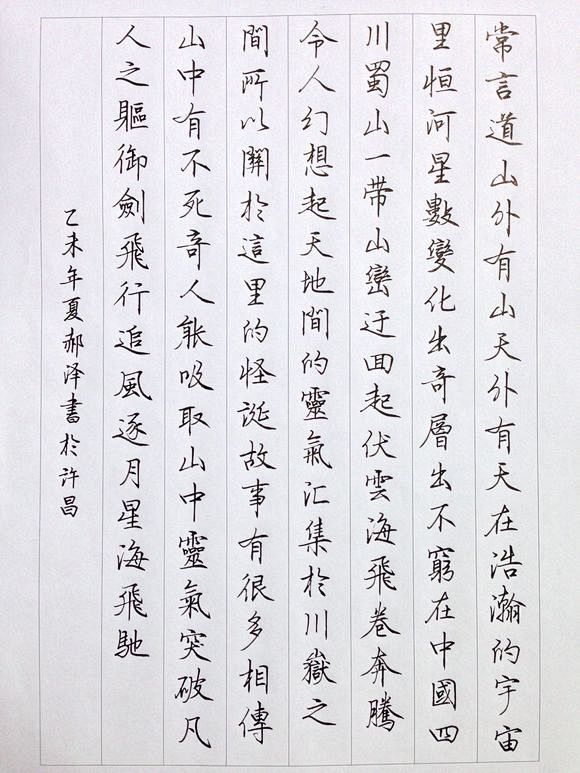 常言道山外有山天外有天在浩瀚的宇宙
里恒河星數變化出奇層出不窮在中國四
川蜀山一带山巒迂回起伏雲海飛卷奔騰
令人幻想起天地間的靈氣汇集於川嶽之
間所以關於這里的怪诞故事有很多相傳
山中有不死奇人能吸取山中靈氣突破凡
人之軀御劍飛行追風逐月星海飛馳
乙未年夏郝泽書於许昌